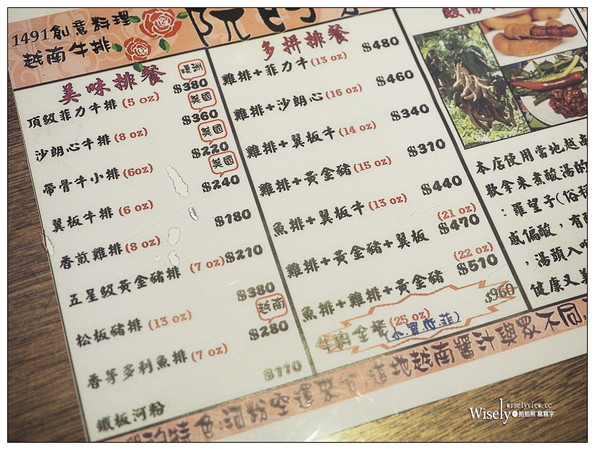 1491創意料理
越南牛排
美味排餐
頂級菲力牛排(5 oz) 澳洲 $380
沙朗心牛排(8 oz) 美國 $360
帶骨牛小排(6oz) 美國 $220
翼板牛排(6 oz) 美國 $240
香煎雞排(8 oz) $180
五星級黃金豬排(7 oz) $210
松板豬排(13 oz) $380
香茅多利魚排(7 oz) 越南 $280
鐵板河粉 $110
多拼排餐
雞排+菲力牛(13 oz) $480
雞排+沙朗心(16 oz) $460
雞排+翼板牛(14 oz) $340
雞排+黃金豬(15 oz) $310
魚排+翼板牛(13 oz) $440
雞排+黃金豬+翼板(21 oz) $470
魚排+雞排+黃金豬(22 oz) $510
全餐(25 oz) $960
本店使用當地越南
欸拿來煮酸湯的
：羅望子(俗稱
感偏酸，有
，湯頭入味
健康又美
特色 道地越南醬汁與眾不同
wiselyview.cc
Wisely 拍拍照 寫寫字